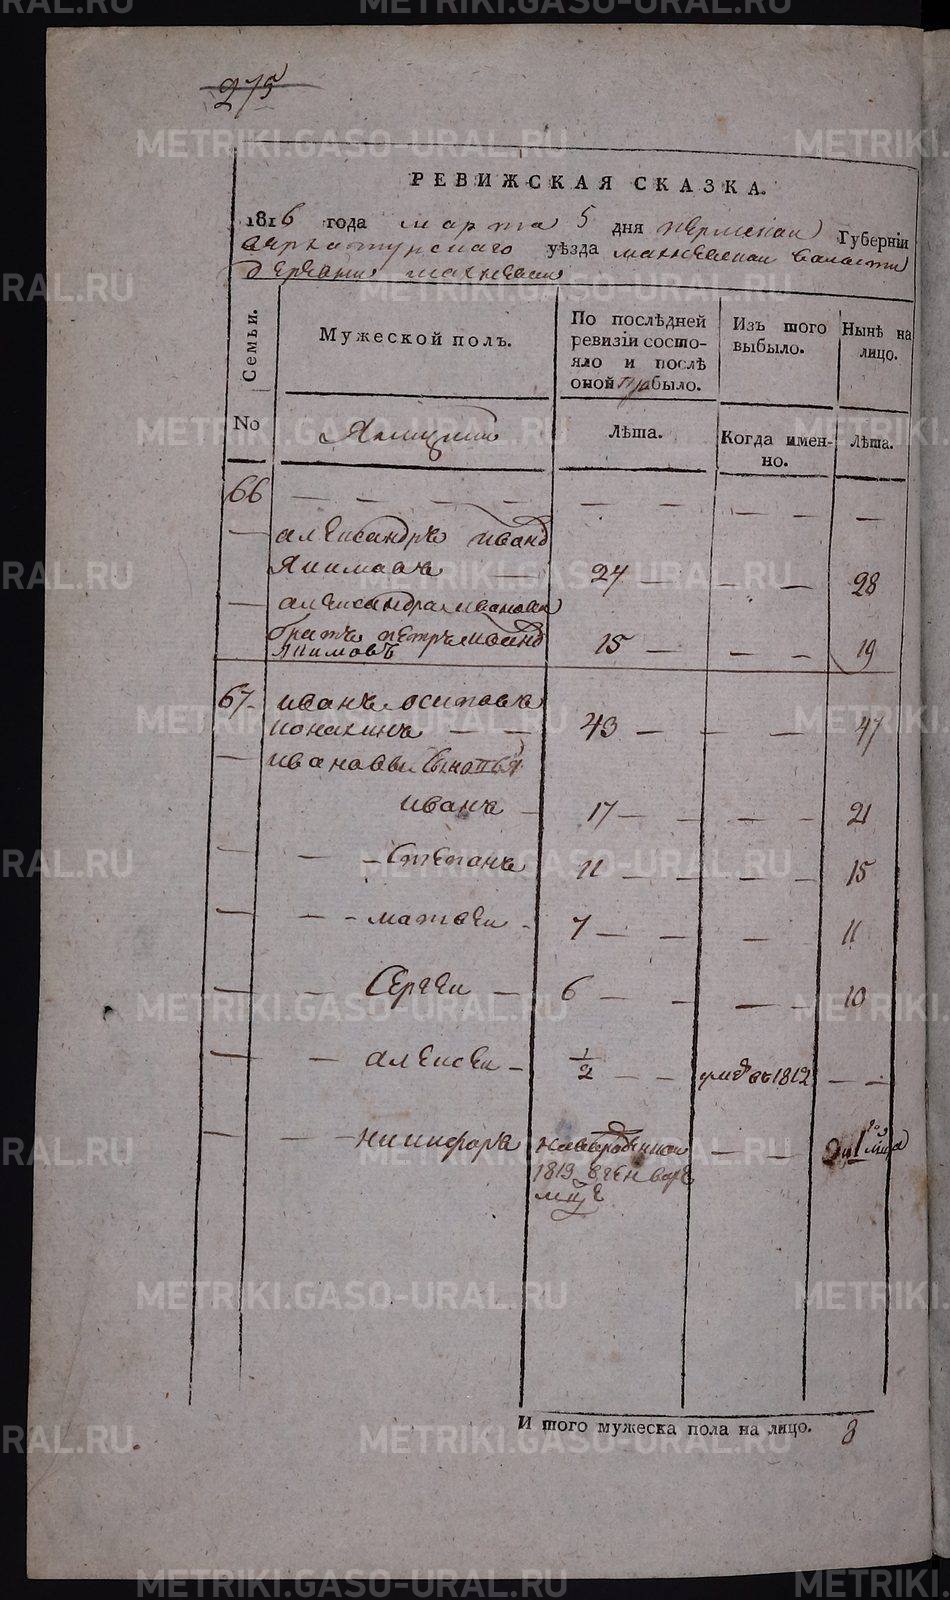 275
РЕВИЖСКАЯ СКАЗКА.
1816 года марта 5 дня пермскаи Губерніи
верхотурскаго уѣзда махневскаи валасти
деревни махневаи
Семьи.
Мужеской полъ.
По послѣдней ревизіи состояло и послѣ оной прибыло.
Изъ того выбыло.
Нынѣ на лицо.
No
Ямщики
Лѣта.
Когда именно.
Лѣта.
66 — — — — — — — — —
— александръ иванд
якимовъ — 24 — — — 28
— александра ивановa
братъ петръ иванд
якимовъ 15 — — — 19
67 - иванъ осиповъ
конахинъ — — 43 — — — 47
— ивановы сыновья
иванъ - 17 — — — 21
— — - Степанъ 11 — — — — 15
— — - матвеи - 7 — — — 11
— — Сергеи — 6 — — — 10
— — алексеи - 1/2 — — умре въ 1812 — —
— — — никифоръ новарожденнои — — 2 и 1 мца
1813 генваре
мце
И того мужеска пола на лицо. 8
METRIKI.GASO-URAL.RU